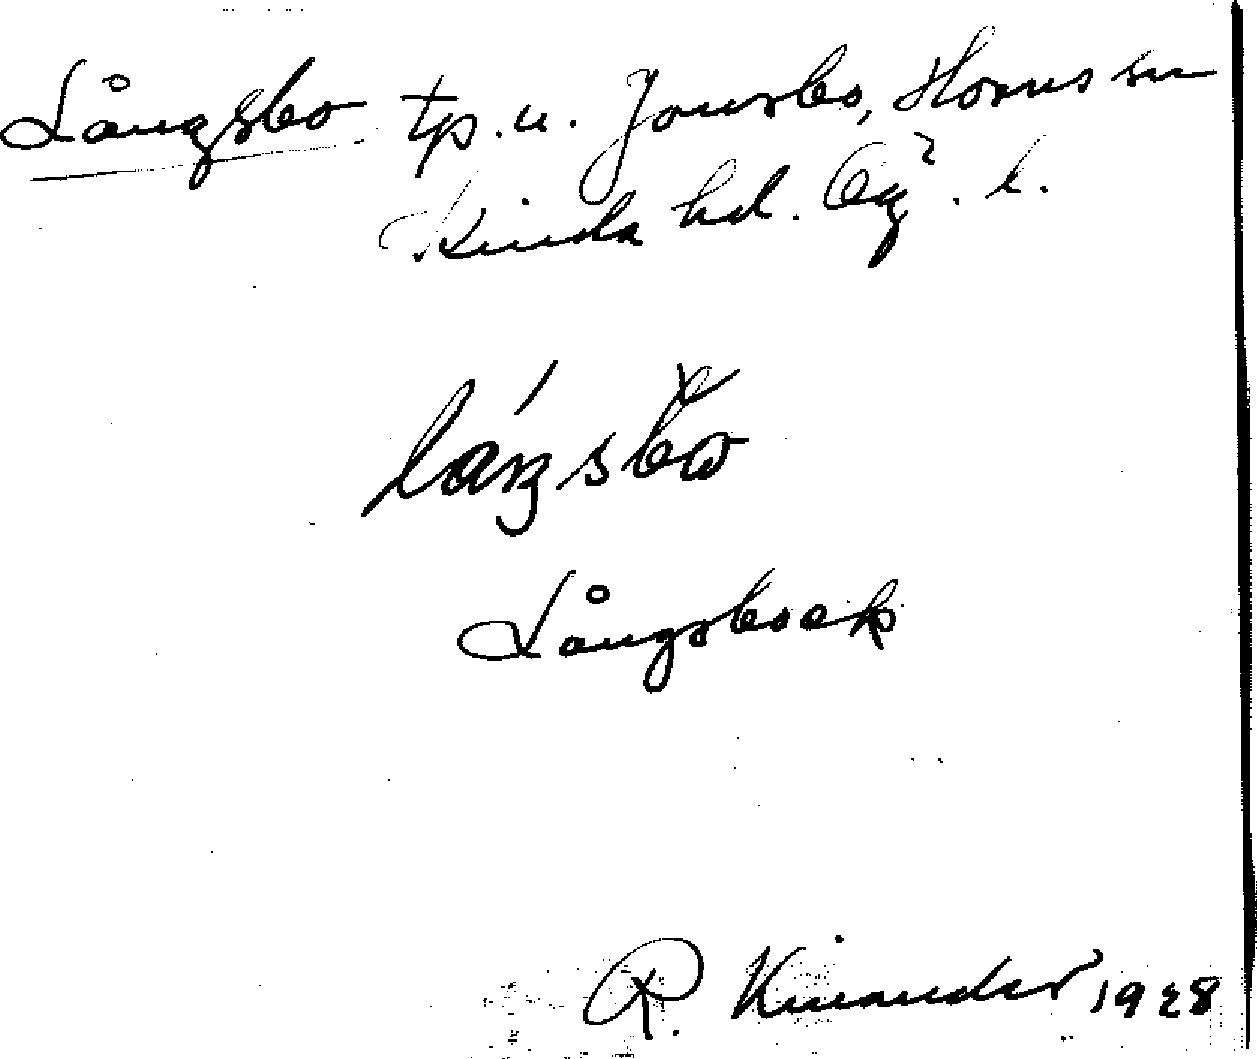 Långsbo tp. u. Jonsbo, Horns sn
Kinda hd. Ög. l.
láŋsbω
Långsboek
R. Kinander 1928